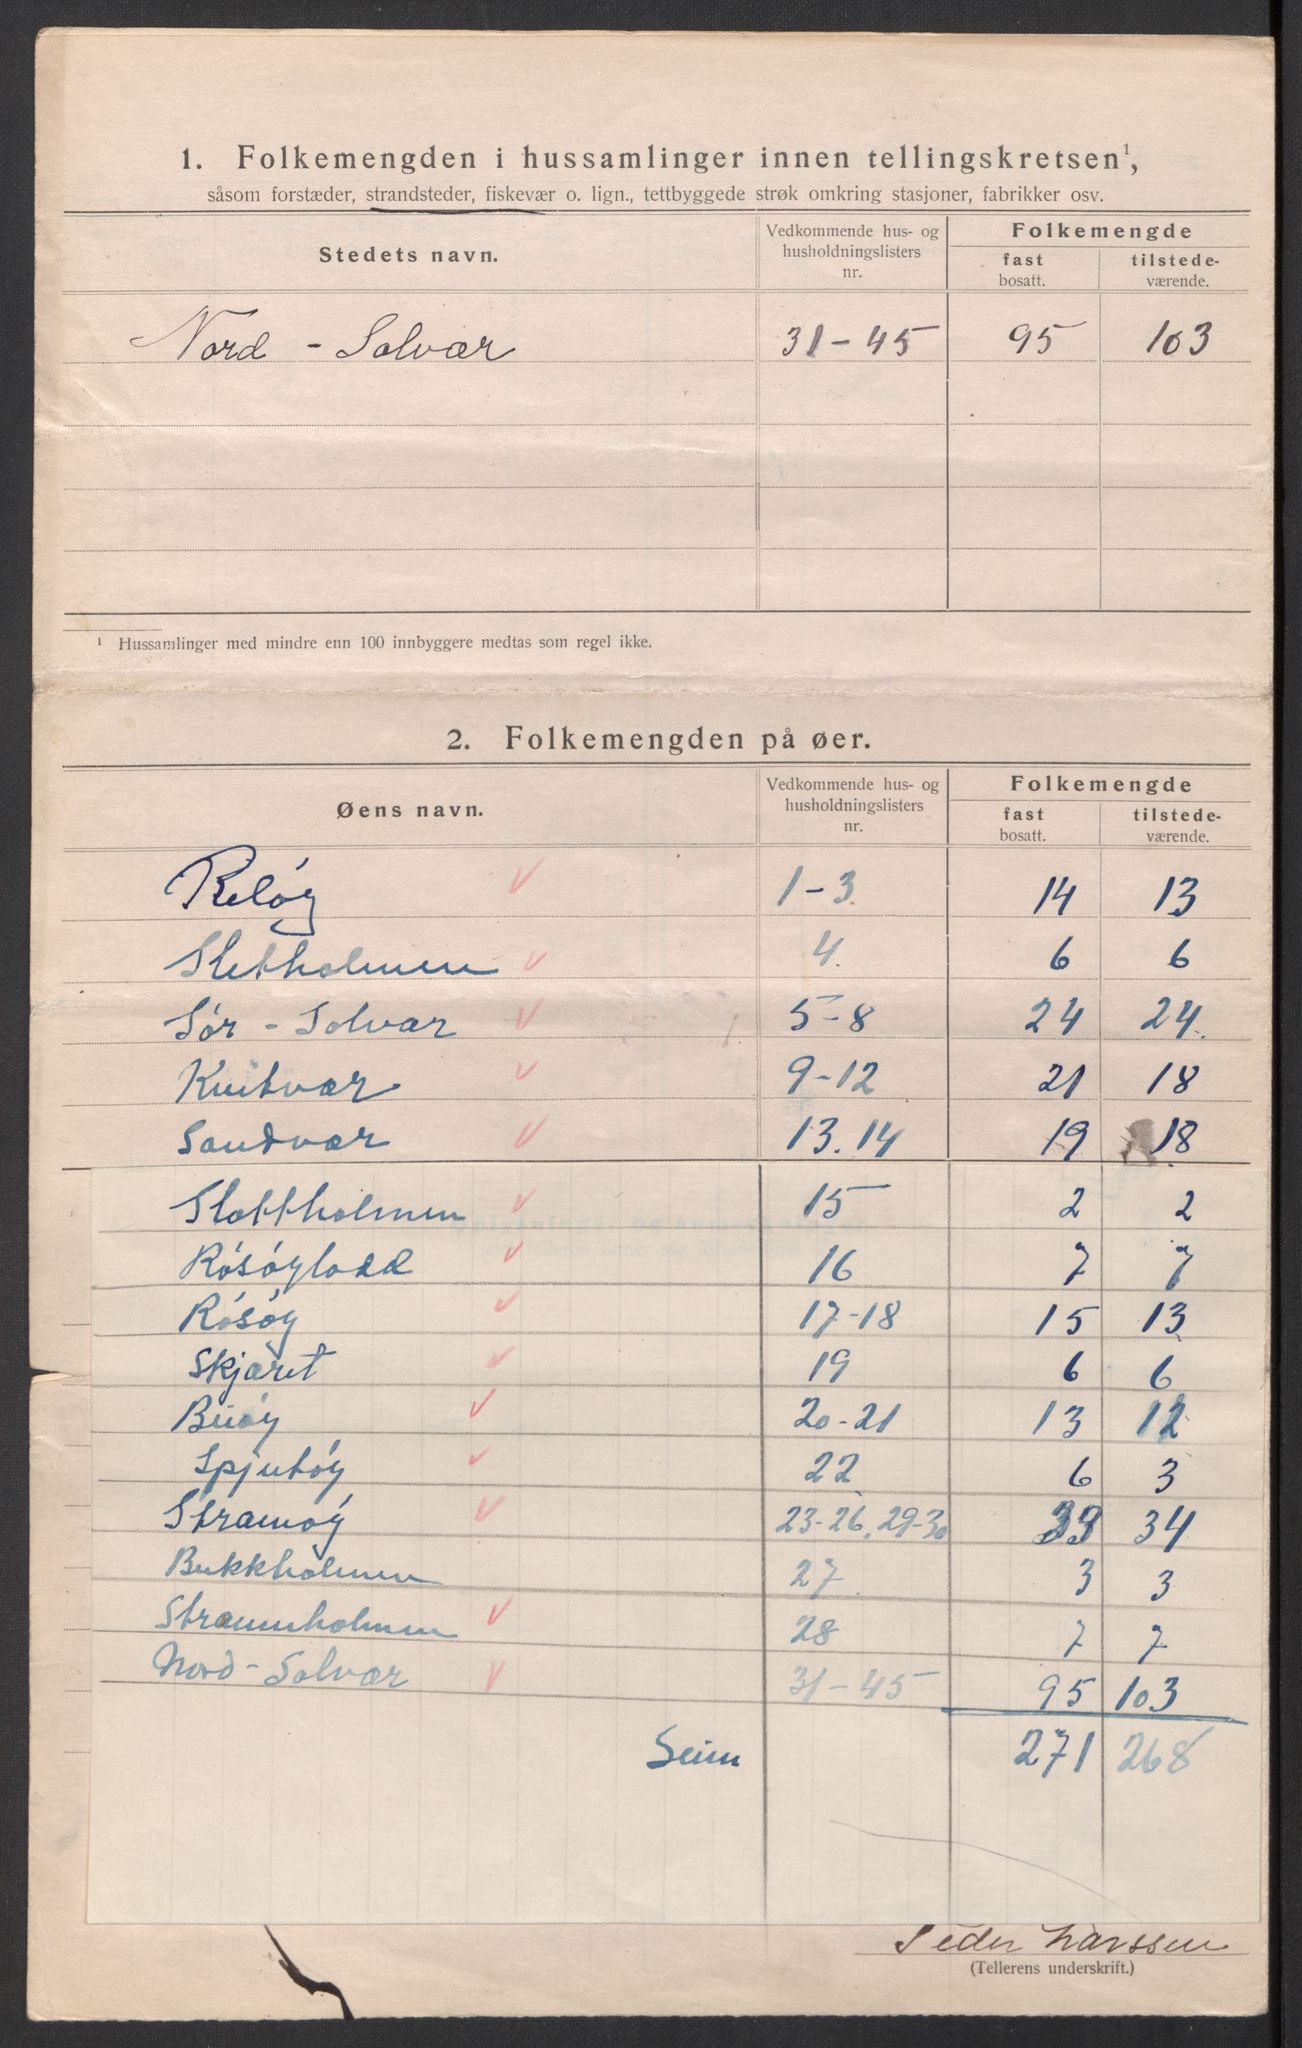 1. Folkemengden i hussamlinger innen tellingskretsen¹,
såsom forstæder, strandsteder, fiskevær o. lign., tettbyggede strøk omkring stasjoner, fabrikker osv.
Stedets navn. Vedkommende hus- og husholdningslisters nr. Folkemengde fast bosatt. tilstede-værende.
Nord - Solvær 31-45 95 103
¹ Hussamlinger med mindre enn 100 innbyggere medtas som regel ikke.
2. Folkemengden på øer.
Øens navn. Vedkommende hus- og husholdningslisters nr. Folkemengde fast bosatt. tilstede-værende.
Reløy 1-3. 14 13
Sletholmen 4. 6 6
Sør - Solvær 5-8 24 24.
Kvitvær 9-12 21 18
Sandvær 13.14 19 18
Slottholmen 15 2 2
Røsøylodd 16 7 7
Røsøy 17-18 15 13
Skjæret 19 6 6
Buøy 20-21 13 12
Spjutøy 22 6 3
Straumøy 23-26, 29-30 33 34
Bukkholmen 27 3 3
Straumholmen 28 7 7
Nord - Solvær 31-45 95 103
Seum 271 268
Peder Larssen
(Tellerens underskrift.)